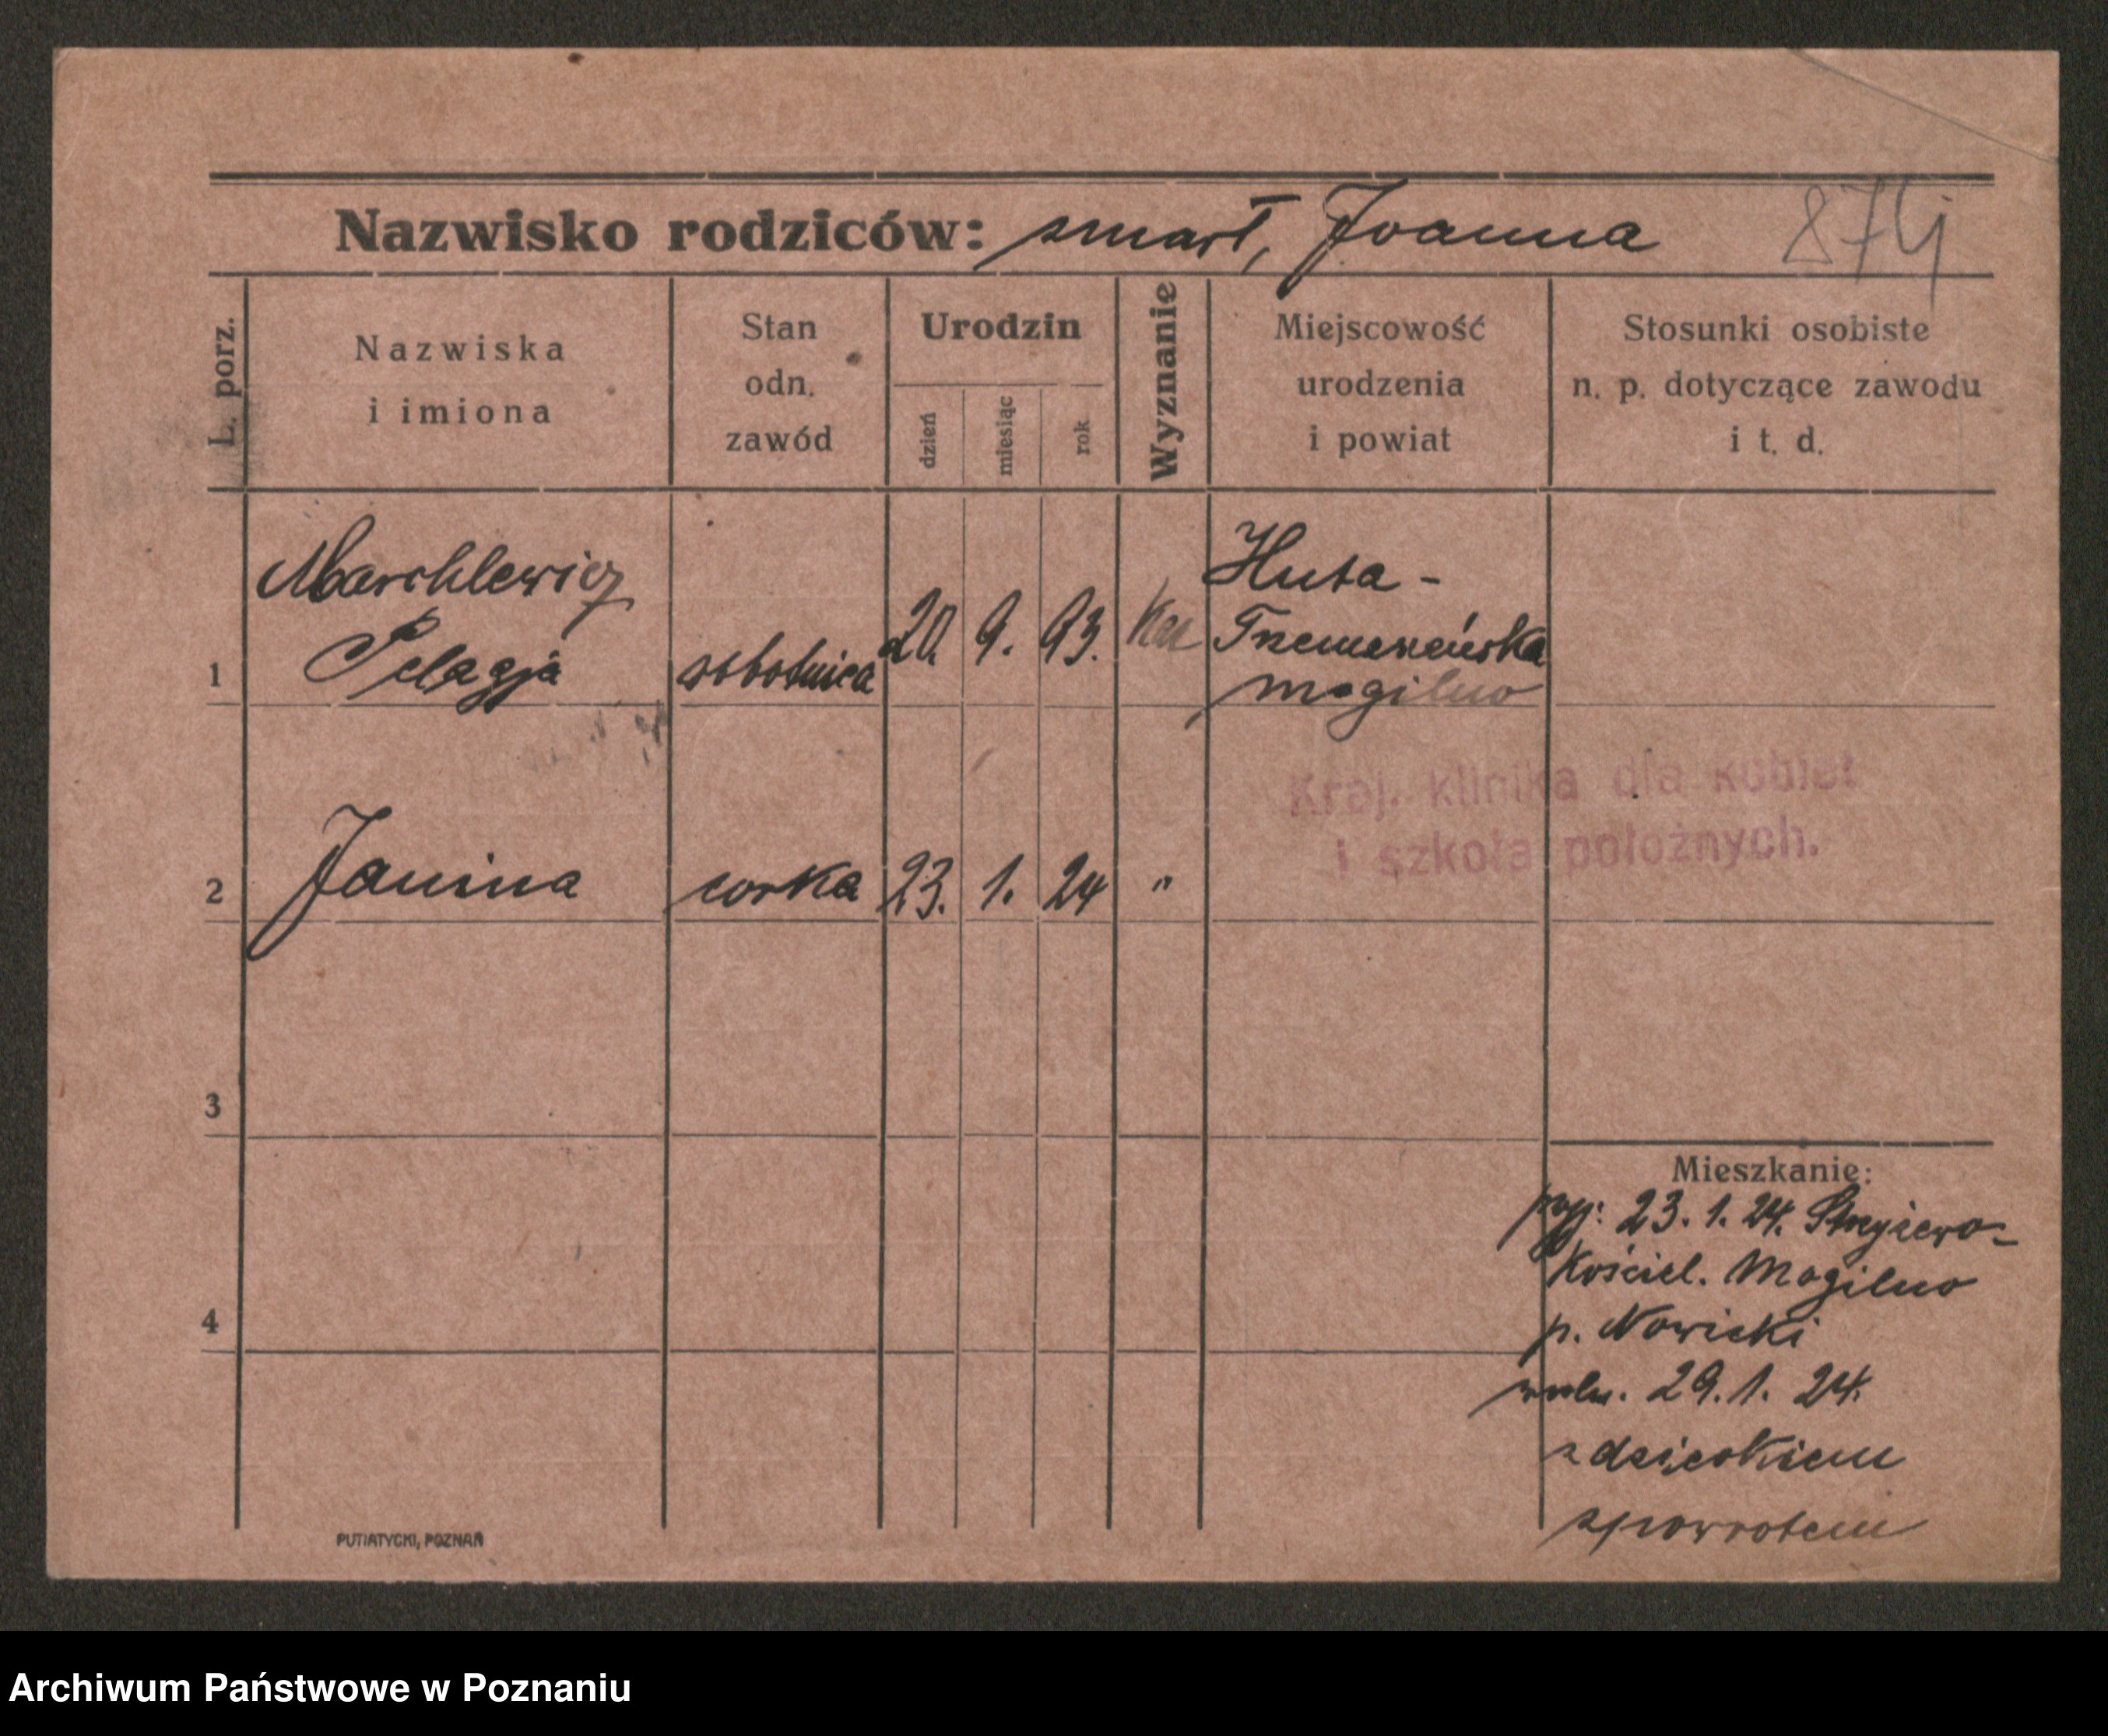 Nazwisko rodziców: zmarł, Joanna 874
L. porz.
Nazwiska
i imiona
Stan
odn.
zawód
Urodzin
dzień
miesiąc
rok
Wyznanie
Miejscowość
urodzenia
i powiat
Stosunki osobiste
n. p. dotyczące zawodu
i t. d.
Marchlewicz
Pelagja
1
robotnica
20. 9. 93.
Huta -
Trzemeszeńska
Mogilno
Kraj. klinika dla kobiet
i szkoła położnych.
2
Janina
corka
23. 1. 24
"
3
4
Mieszkanie:
23. 1. 24. Strzyżewo-
Kościel. Mogilno
p. Nowicki
29. 1. 24.
z dzieckiem
zpowrotem
PUTIATYCKI, POZNAŃ
Archiwum Państwowe w Poznaniu